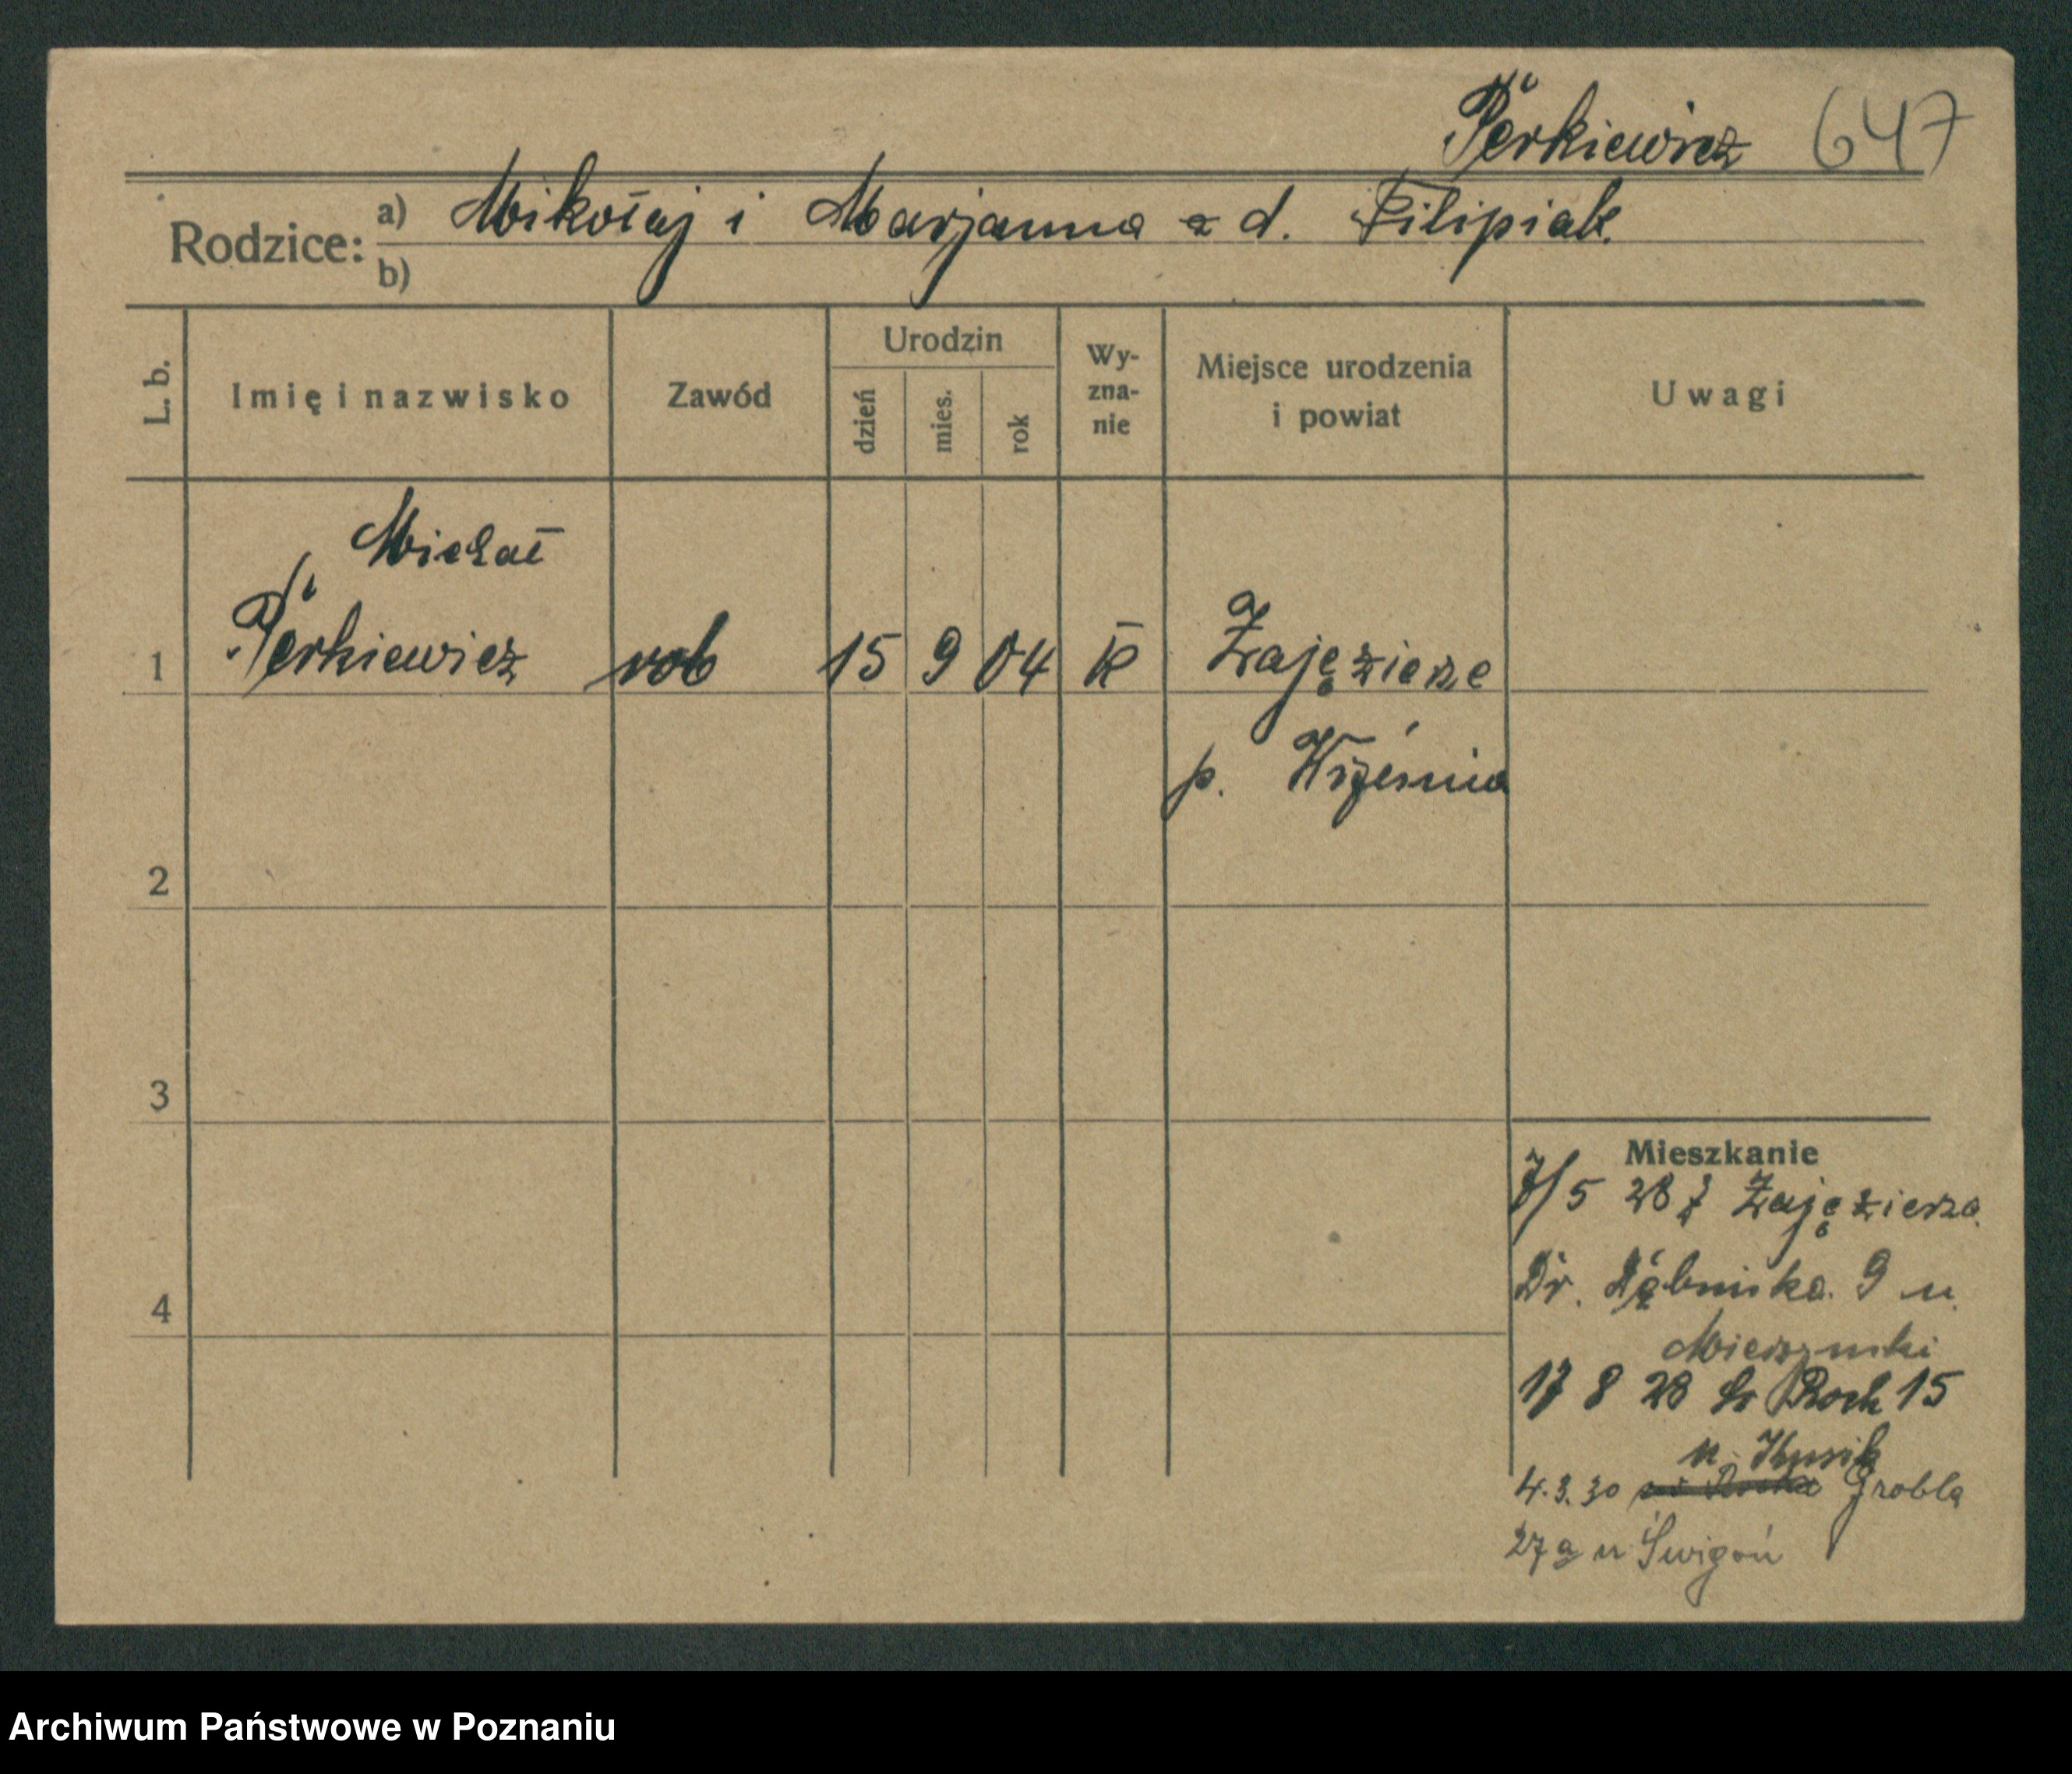 Perkiewicz 647
Rodzice: a) Mikołaj i Marjanna z d. Filipiak
b)
L. b. Imię i nazwisko Zawód Urodzin dzień mies. rok Wyznanie Miejsce urodzenia i powiat Uwagi
Michał
1 Perkiewicz rob 15 9 04 K Zajęzierze
p. Września
2
3
Mieszkanie
7/5 28 z Zajęzierza
4
Dr. Dębińska 9 u
17 8 28 św Roch 15
u
4.3.30 Grobla
27a u Świgoń
Archiwum Państwowe w Poznaniu